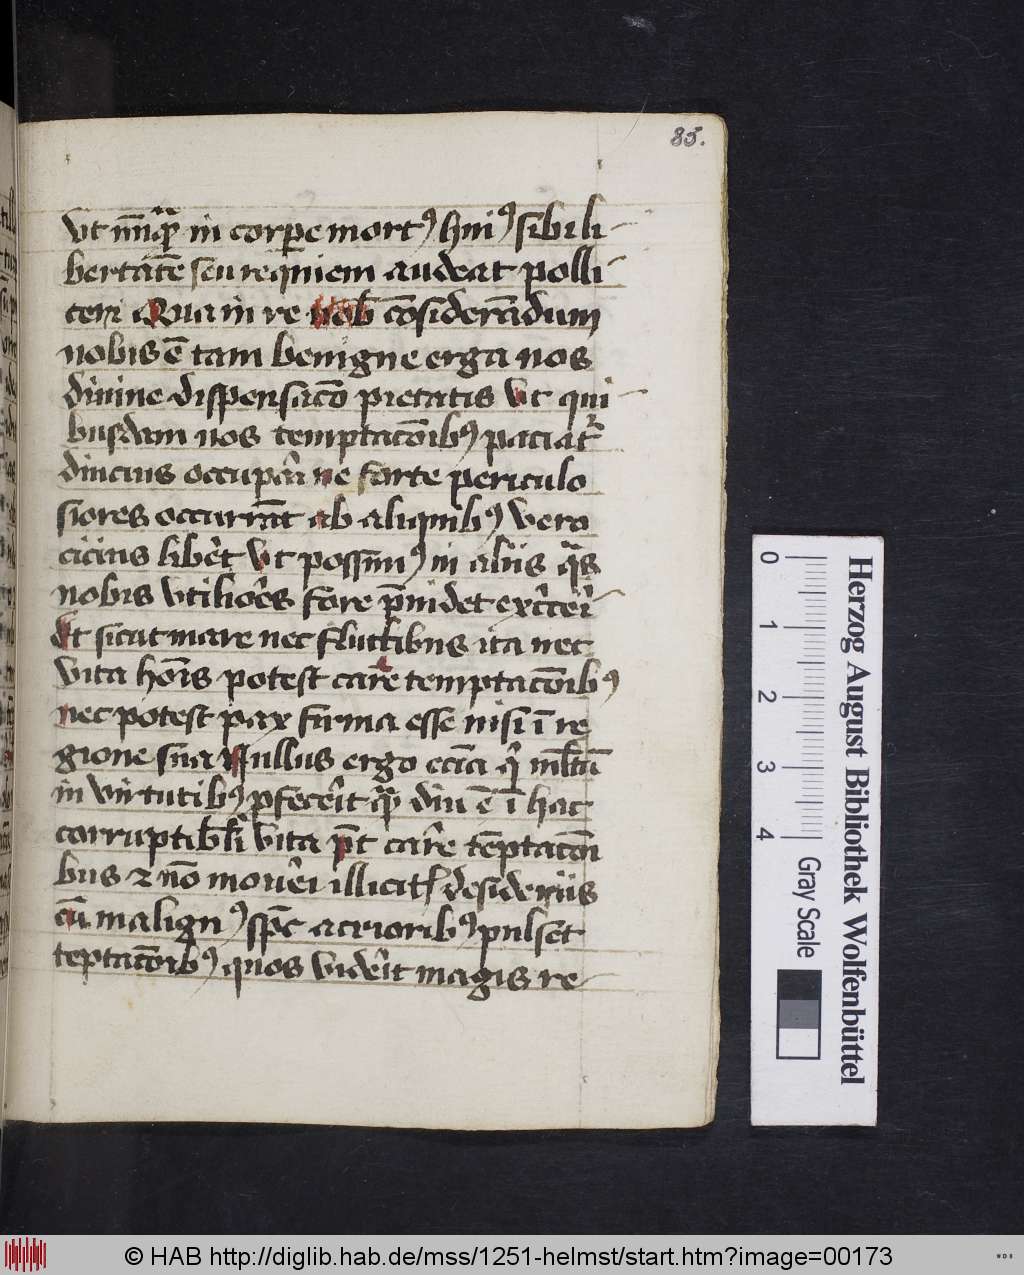 85.
vt nūqꝫ in corꝑe mortꝰ hniꝰ sibi li
bertatē seu requiem audeat polli
ceri Qua in re nob̄ cōsiderādum
nobis ē tam benigne erga nos
diuine dispensacō pietatis vt qui
busdam nos temptacōibꝰ paciat᷑
diucius occupari ne forte periculo
siores occurrāt ab aliquibꝰ vero
cicius lib̄et vt possimꝰ in aliis q̄s
nobis vtiliōes fore p̄uidet ex̄cceri
Et sicut mare nec fluctibus ita nec
vita hoīs potest carē temptacōibꝰ
nec potest pax firma esse nisi ī re
gione sua Nullus ergo eciā qͥ ml̄tū
in virtutibꝰ ꝓfecerīt qꝫ diu ē ī hac
corruptibl̄i vita p̄t carē tēptacōi
bus ⁊ nō mouēi illicitꝭ desideriis
cū malignꝰ sp̄c acrioribꝰ pulset
tēptacōibꝰ quos viderīt magis re
0
1
2
3
4
Gray Scale
Herzog August Bibliothek Wolfenbüttel
© HAB http://diglib.hab.de/mss/1251-helmst/start.htm?image=00173